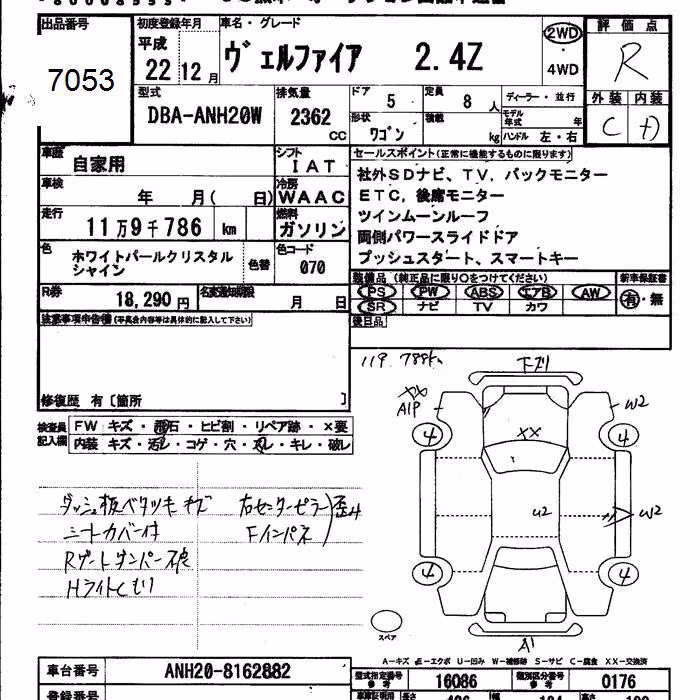 出品番号
7053
初度登録年月
平成
22 12月
車名・グレード
ヴェルファイア 2.4Z
2WD
・
4WD
評価点
R
外装 内装
C
型式
DBA-ANH20W
排気量
2362
CC
ドア
5
形状
ワゴン
定員
8 人
積載
kg
ディーラー・並行
モデル
年式
年
ハンドル 左・右
車歴
自家用
シフト
IAT
冷房
WAAC
車検
年 月( 日)
走行
11万9千786 km
燃料
ガソリン
色
ホワイトパールクリスタル
シャイン
色替
色コード
070
R券
18,290円
名変通知期限
月 日
セールスポイント(正常に機能するものに限ります)
社外SDナビ、TV、バックモニター
ETC、後席モニター
ツインムーンルーフ
両側パワースライドドア
プッシュスタート、スマートキー
装備品(純正品に限り○をつけてください)
新車保証書
PS PW ABS エアB AW
有・無
SR ナビ TV カワ
後日品
注意事項申告欄(写真会内容等は具体的に記入して下さい)
修復歴 有[箇所 ]
119.788km
検査員
記入欄
FW キズ・飛石・ヒビ割・リペア跡・×要
内装 キズ・汚レ・コゲ・穴・スレ・キレ・破レ
ダッシュ板ベタツキ キズ
シートカバー付
Rゲートダンパー不良
Hライトくもり
右センターピラー
Fインパネ
歪み
下ズリ
XX
A1P
W2
4
4
XX
U2
W2
4
4
スペア
A1
A-キズ E-エクボ U-凹み W-補修跡 S-サビ C-腐食 XX-交換済
車台番号
ANH20-8162882
型式指定番号
参考
16086
類別区分番号
参考
0176
登録番号